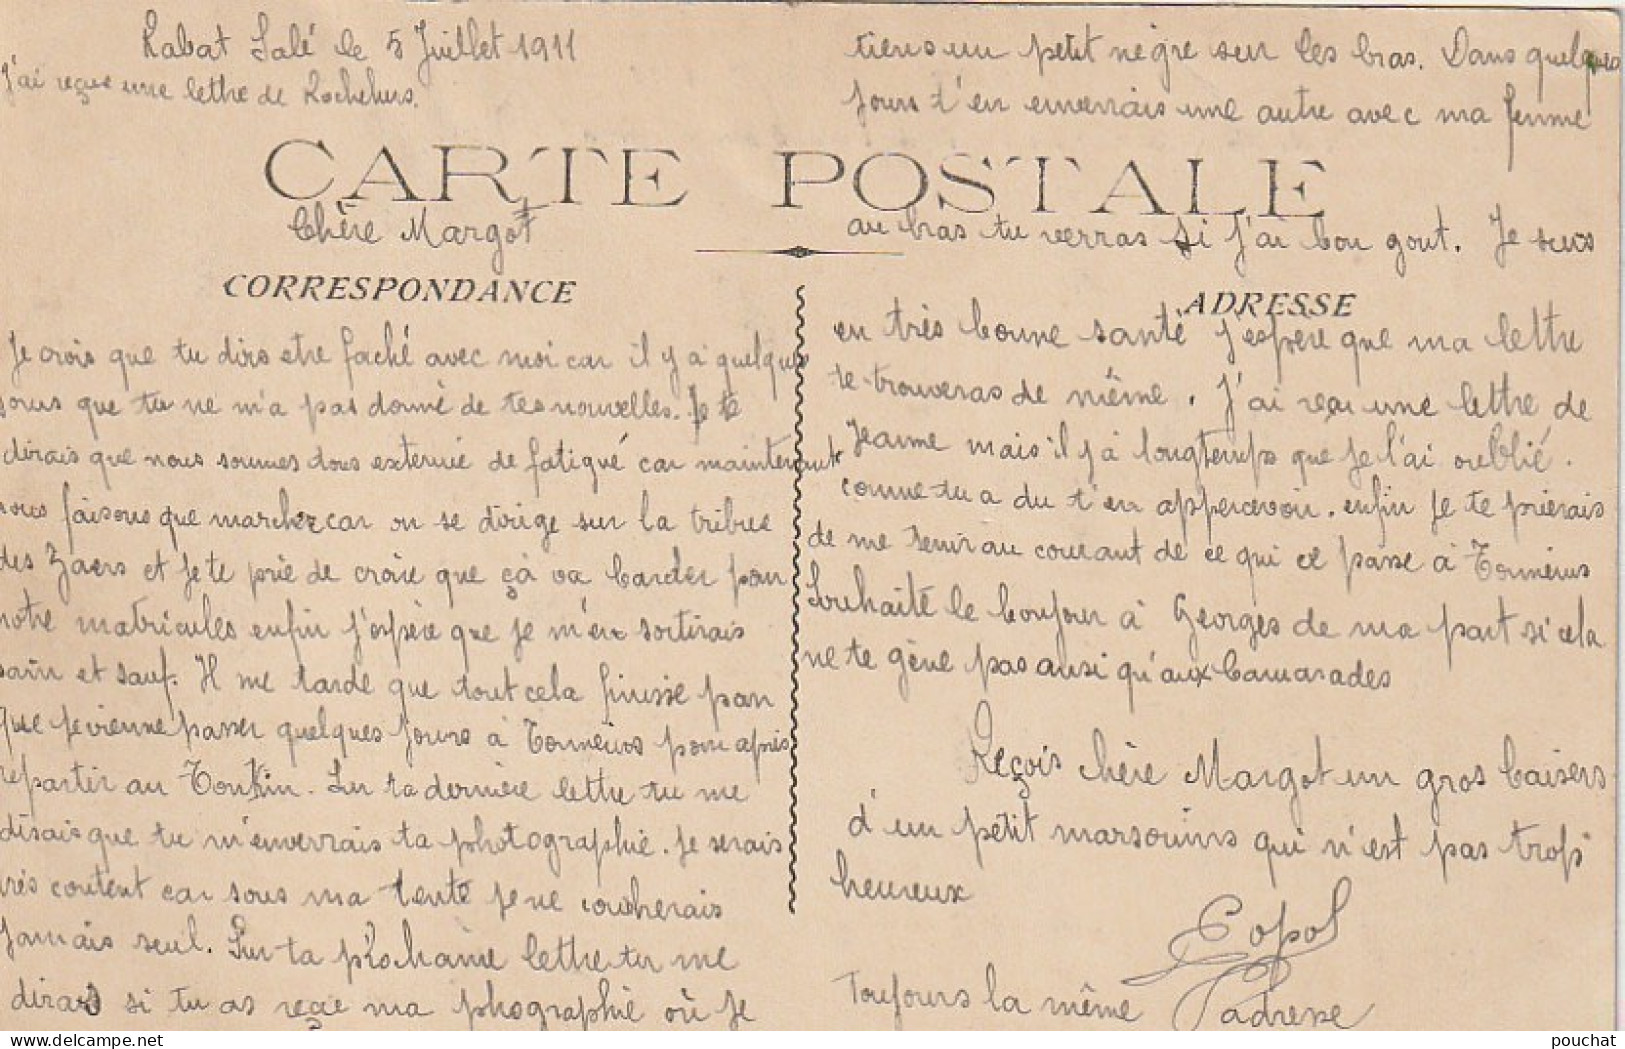 Rabat Salé le 5 Juillet 1911
J'ai reçue une lettre de Rochehers.
CARTE POSTALE
Chère Margot
CORRESPONDANCE
Je crois que tu dirs etre faché avec moi car il y a quelques
jours que tu ne m'a pas donné de tes nouvelles. Je te
dirais que nous sommes dous exterminé de fatigué car maintenant
nous faisons que marcher car on se dirige sur la tribue
des Zaers et je te prie de croire que çà va barder pour
notre matricules enfin j'espère que je m'en sortirais
sain et sauf. Il me tarde que tout cela finisse pour
que je vienne passer quelques jours à pour après
repartir au Tonkin. Sur ta dernière lettre tu me
disais que tu m'enverrais ta photographie. Je serais
très content car sous ma tente je ne coucherais
jamais seul. Sur ta prochaine lettre tu me
dirais si tu as reçue ma phographie où je
tiens un petit nègre sur les bras. Dans quelques
jours t'en enverrais une autre avec ma femme
au bras tu verras si j'ai bon gout. Je suis
ADRESSE
en très bonne santé j'espère que ma lettre
te trouveras de même. J'ai reçu une lettre de
Jeanne mais il y à longtemps que je l'ai oublié.
comme tu a du t'en appercevoir. enfin je te prierais
de me tenir au courant de ce qui ce passe à
Souhaité le bonjour à Georges de ma part si cela
ne te gène pas ausi qu'aux Camarades
Reçois chère Margot un gros baisers
d'un petit marsouins qui n'est pas trop
heureux
Popol
Toujours la même adresse
www.delcampe.net
pouchat